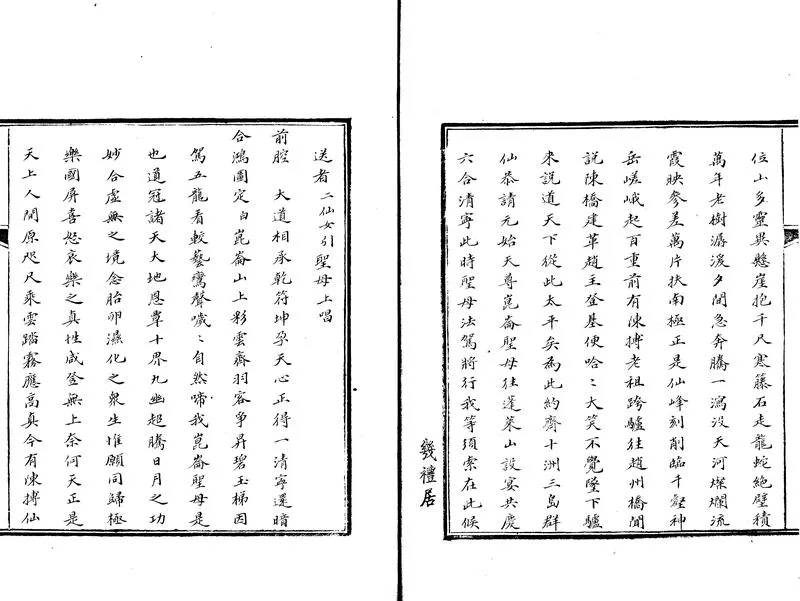 位山多靈異懸崖抱千尺寒藤石走龍蛇絶壁積
萬年老樹潺湲夕間急奔騰一瀉没天河燦爛流
霞映參差萬片扶南極正是仙峰刻削臨千壑神
岳嵯峨起百重前有陳摶老祖跨驢往趙州橋間
説陳橋建革趙王登基便哈〻大笑不覺墜下驢
來説道天下從此太平矣為此約齊十洲三島群
仙恭請元始天尊崑崙聖母往蓬萊山設宴共慶
六合清寧此時聖母法駕將行我等須索在此候
幾禮居
送者二仙女引聖母上唱
前腔 大道相承乾符坤孕天心正得一清寧還暗
合鴻圖定白崑崙山上彩雲齊羽客爭昇碧玉梯因
駕五龍看較藝鸞聲噦〻自然啼我崑崙聖母是
也道冠諸天大地恩覃十界九幽超騰日月之功
妙合虛無之境念胎卵濕化之衆生惟願同歸極
樂國屏喜怒哀樂之真性咸登無上奈何天正是
天上人間原咫尺乘雲踏霧應高真今有陳摶仙